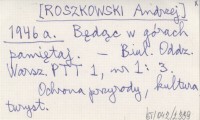 [ROSZKOWSKI Andrzej]
1946 a. Będąc w górach
pamiętaj. — Biul. Oddz.
Warsz. PTT 1, nr 1: 3.
Ochrona przyrody, kultura
turyst.